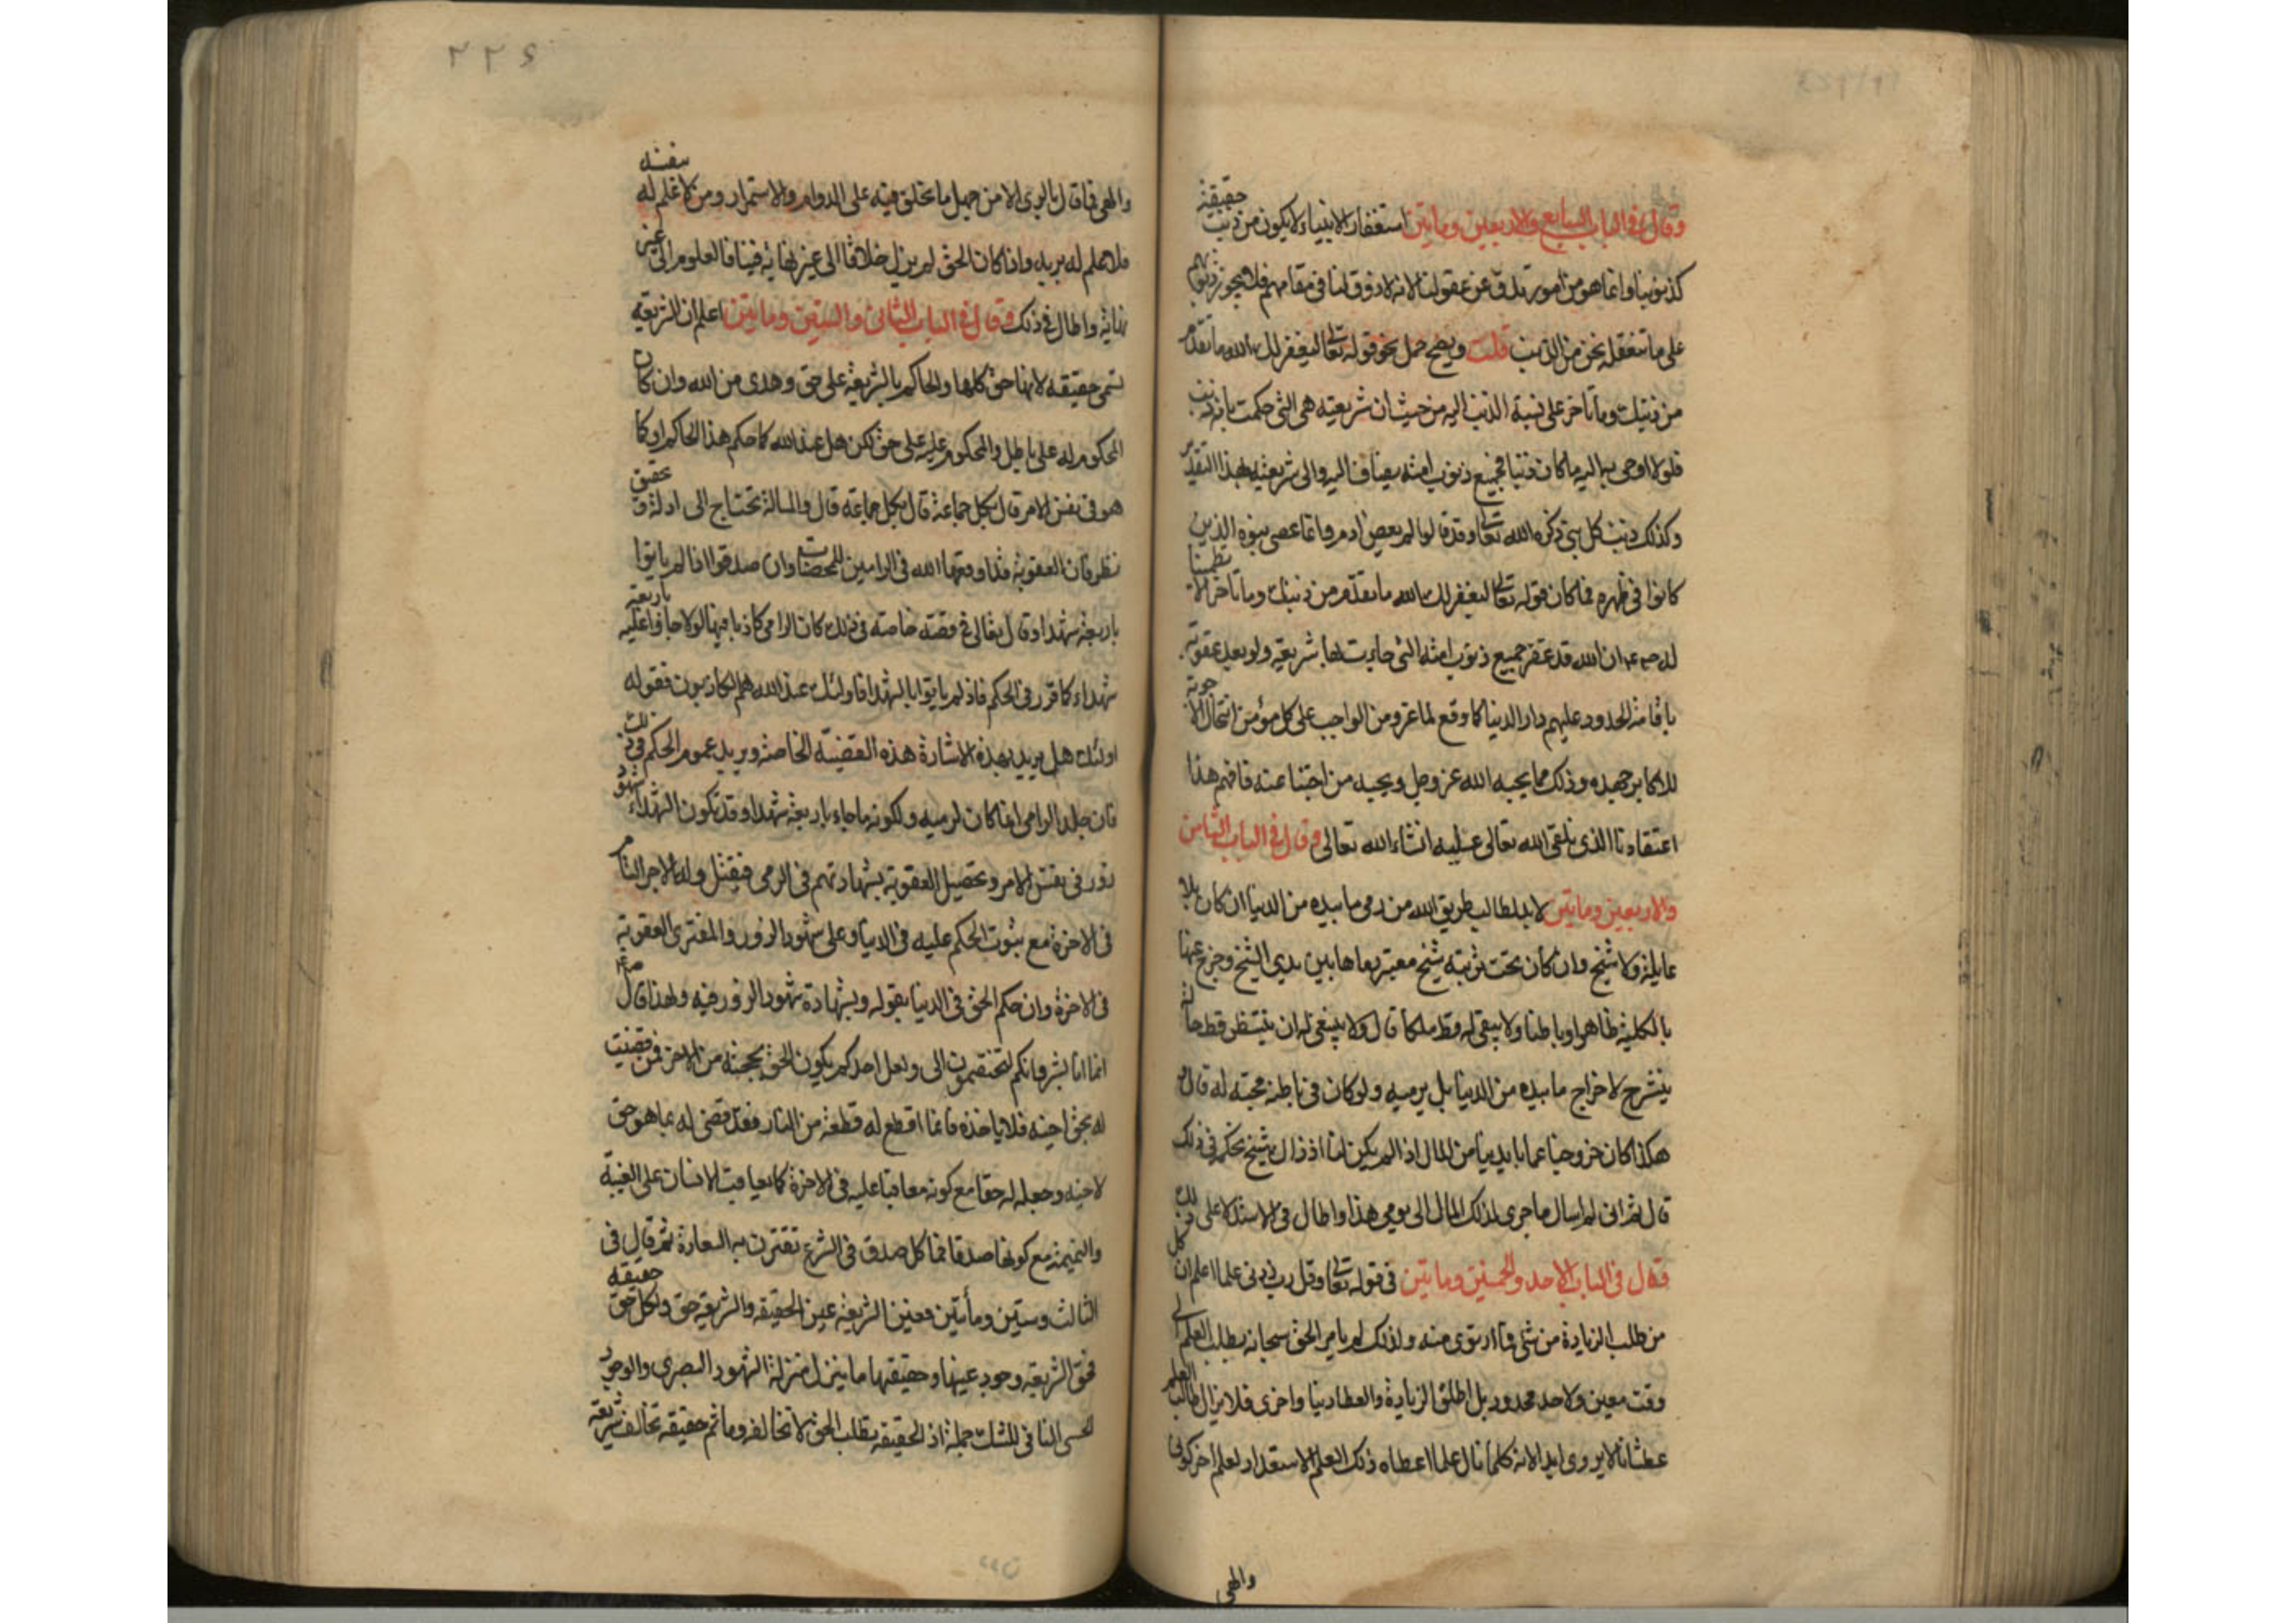 وقال في الباب السابع والاربعين ومايتين استغفار الانبياء لا يكون من ذنب حقيقة
كذنوبنا وانما هو من امور تدق عن عقولنا لانه لا ذوق لنا في مقامهم فلا يجوز ذنوبهم
على ما نتعقله نحن من الذنب قلت ويصح حمل نحو قوله تعالى ليغفر لك الله ما تقدم
من ذنبك وما تاخر على نسبة الذنب اليه من حيث ان شريعته هي التي حكمت بانه ذنب
فلولا اوحى به اليه ما كان ذنبا فجميع ذنوب امته يضاف اليه والى شريعته بهذا التقدير
وكذلك ذنب كل نبي ذكره الله تعالى وقد قالوا لم يعص ادم وانما عصى بنوه الذين
كانوا في ظهره فما كان قوله تعالى ليغفر لك الله ما تقدم من ذنبك وما تاخر الا تطمينا
له ان الله قد غفر جميع ذنوب امته التي جاءت بها شريعته ولو بعد عقوبة
باقامة الحدود عليهم دار الدنيا كما وقع لماعز ومن الواجب على كل مؤمن انتحال الاجوبة
للاكابر جهده وذلك مما يحبه الله عز وجل ويحبه من اجبنا عنه فافهم هذا
اعتقادنا الذي نلقى الله تعالى عليه انشاء الله تعالى وقال في الباب الثامن
والاربعين ومايتين لا بد لطالب طريق الله من رمي ما بيده من الدنيا ان كان بلا
عايلة ولا شيخ وان كان تحت تربية شيخ معتبر رماها بين يدي الشيخ وخرج عنها
بالكلية ظاهرا وباطنا ولا يبقي له قط ملكا قال ولا ينبغي له ان ينتظر قط حالة
ينشرح لاخراج ما بيده من الدنيا بل يرميه ولو كان في باطنه محبته له قال
هكذا كان خروجنا عما بايدينا من المال اذ لم يكن لنا اذ ذاك شيخ نحكمه في ذلك
قال ثم اني لم اسال ما جرى لذلك المال الى يومي هذا واطال في الاستدلال على ذلك
وقال في الباب الاحد والخمسين ومايتين في قوله تعالى وقل رب زدني علما اعلم ان كل
من طلب الزيادة من شي فما ارتوى منه ولذلك لم يامر الحق سبحانه بطلب العلم الى
وقت معين ولا حد محدود بل اطلق الزيادة والعطا دنيا واخرى فلا يزال طالب العلم
عطشانا لا يروى ابدا لانه كلما نال علما اعطاه ذلك العلم الاستعداد لعلم اخر كوني
والهي
٢٢٦
والهي فما قال بالري الا من جهل ما يخلق فيه على الدوام والاستمرار ومن لا علم له بنفسه
فلا علم له بربه واذا كان الحق لم يزل خلاقا الى غير نهاية فينا فالعلوم الى غير
نهاية واطال في ذلك وقال في الباب الثاني والستين ومايتين اعلم ان الشريعة
تسمى حقيقة لانها حق كلها والحاكم بالشريعة على حق وهدى من الله وان كان
المحكوم له على باطل والمحكوم عليه على حق لكن هل عند الله كما حكم هذا الحاكم او كما
هو في نفس الامر قال بكل جماعة قال بكل جماعة قال والمسالة تحتاج الى ادلة وتحقيق
نظر فان العقوبة قد اوقعها الله في الرامين للمحصنات وان صدقوا اذا لم ياتوا
باربعة شهدا وقال تعالى في قصة خاصة في ذلك كان الرامي كاذبا فيها لولا جاؤا عليه باربعة
شهداء كما قرر في الحكم فاذ لم ياتوا بالشهدا فاولئك عند الله هم الكاذبون فقوله
اولئك هل يريد بهذه الاشارة هذه القضية الخاصة ويريد عموم الحكم في ذلك
فان جلد الرامي انما كان لرميه ولكونه ما جاء باربعة شهدا وقد تكون الشهداء شهود
زور في نفس الامر وتحصيل العقوبة بشهادتهم في الرمي فيقتل وله الاجر التام
في الاخرة مع ثبوت الحكم عليه في الدنيا وعلى شهود الزور والمفتري العقوبة
في الاخرة وان حكم الحق في الدنيا بقوله وبشهادة شهود الزور فيه ولهذا قال
انما انا بشر وانكم لتختصمون الى ولعل احدكم يكون الحق بحجته من الاخر فمن قضيت
له بحق اخيه فلا ياخذه فانما اقطع له قطعة من النار فقد قضى له بما هو حق
لاخيه وجعله له حقا مع كونه معاقبا عليه في الاخرة كما يعاقب الانسان على الغيبة
والنميمة مع كونها صدقا فما كل صدق في الشرع تقترن به السعادة ثم قال في
الثالث وستين ومأتين فعين الشريعة عين الحقيقة والشريعة حق ولكل حق حقيقة
فحق الشريعة وجود عينها وحقيقتها ما ينزل منزلة الشهود البصري والوجود
الحسي النافي للشك جملة اذ الحقيقة بطلب الحق لا تخالفه وما ثم حقيقة تخالف شريعة